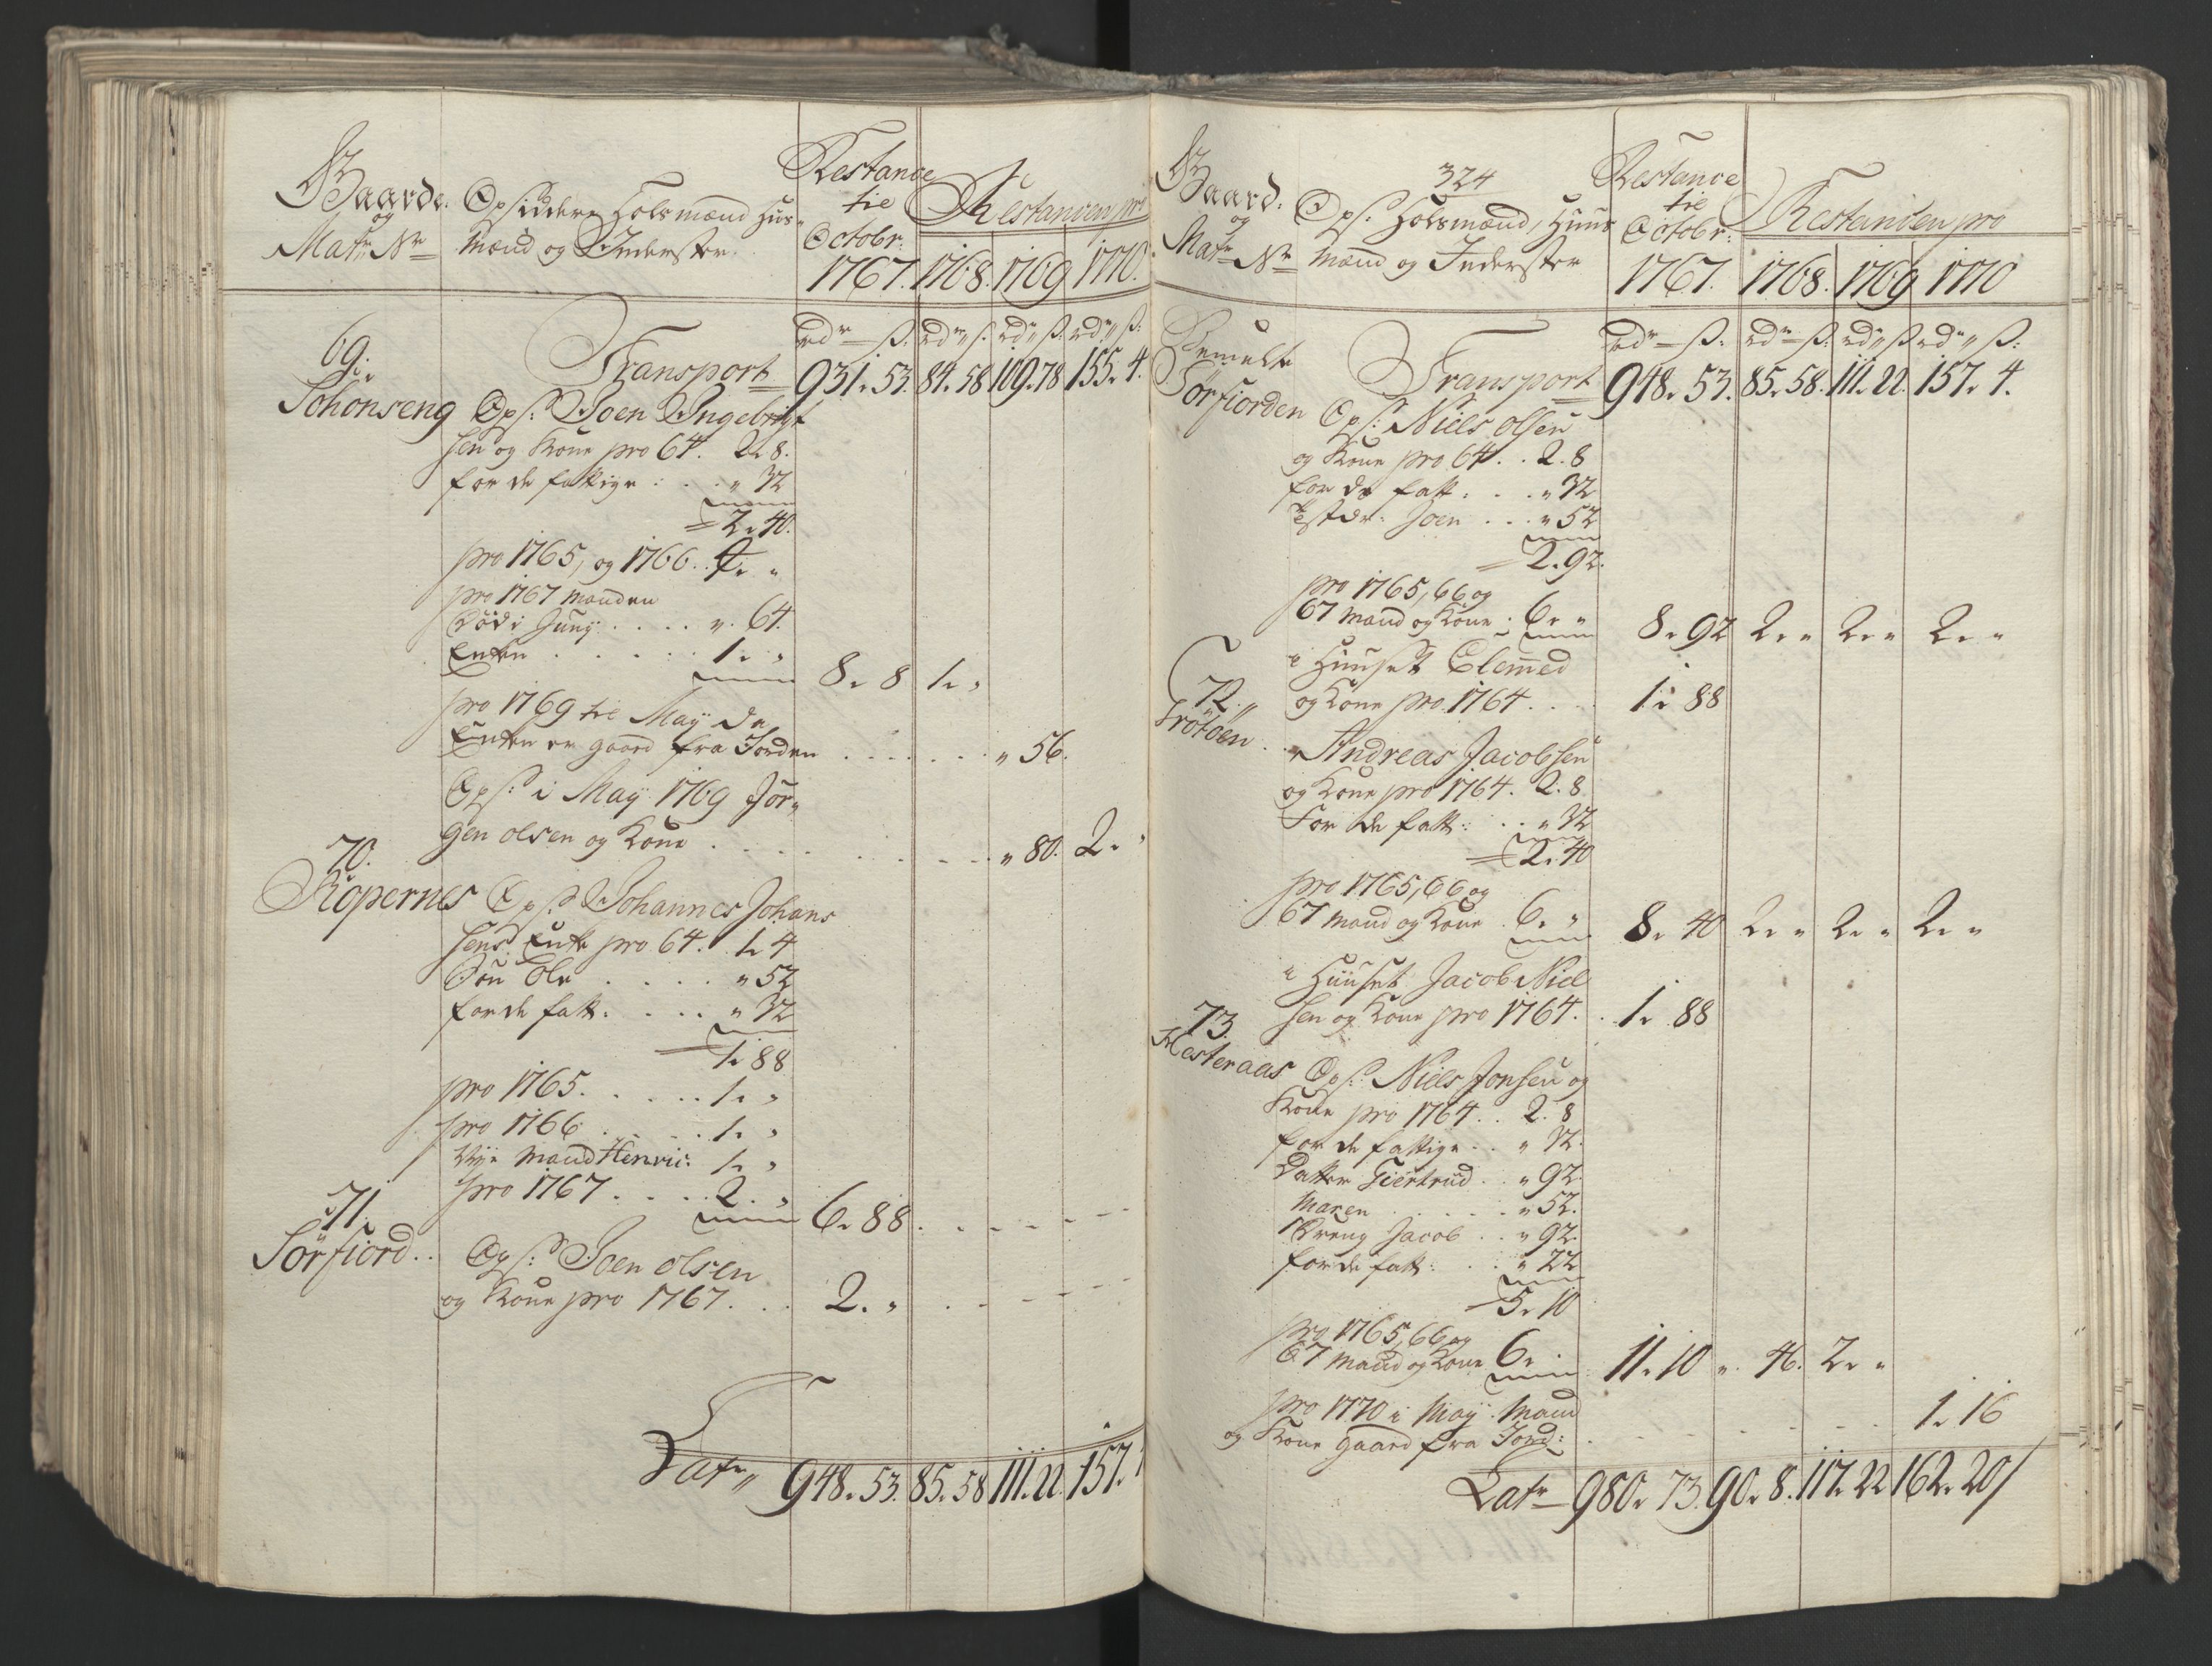 Gaarde. Opsiddere Holsmænd Hus-
og
Matr Nr mænd og Inderster.
Restance
til
Octobr:
1767.
Restancen pro
1768. 1769 1770.
rdr ß. rdr ß. rdr ß. rdr ß:
69.
Transport 931. 53. 84. 58 109. 78 155. 4.
Schonseng Ops: Joen Ingebrigt
sen og Kone pro 64. 2. 8.
for de fattige . . . " 32
2. 40.
pro 1765, og 1766. 4. "
pro 1767 manden
død i Junij . . . . ". 64.
Enken . . . . . 1. " 8. 8 1. "
pro 1769 til Maij da
Enken er gaaed fra Jorden . . . . . . " 56.
Ops: i Maij 1769 Jör-
gen olsen og Kone . . . . . . " 80. 2. "
70.
Kopernes Ops: Johannes Johans
sens Enke pro 64. 1. 4
Søn Ole . . . . . " 52
for de fatt. . . . " 32
1. 88
pro 1765. . . . . . 1. "
pro 1766 . . . . . 1. "
Nye Mand Henric: 1. "
pro 1767 . . . . 2. " 6. 88.
71.
Sörfiord. . Ops: Joen olsen
og Kone pro 1767. . . 2. "
Latr 948. 53. 85. 58 111. 22. 157.
324
Gaard. Ops: Holsmænd, Huus
og
Matr Nr mænd og Inderster
Restance
til
Octobr:
1767.
Restancen pro
1768. 1769 1770
rdr ß: rdr ß: rdr ß rdr ß:
Bemelte
Sörfiorden Transport 948. 53. 85. 58. 111. 22. 157. 4.
Ops: Niels olsen
og Kone pro 64. . 2. 8
for de fatt. . . . " 32
Joen . . . " 52
2. 92.
pro 1765, 66 og
67 mand og Kone . 6. " 8. 92 2. " 2. " 2. "
i Huuset Clemmed
72. og Kone pro 1764. . . . 1. 88
Trotöen . . Andreas Jacobsen
og Kone pro 1764. 2. 8.
For de fatt: . . " 32
2. 40
pro 1765, 66 og
67 mand og Kone . 6. " 8. 40 2. " 2. " 2. "
i Huuset Jacob Niel
sen og Kone pro 1764. . 1. 88
73.
Hesteraas Ops: Niels Jonsen og
Kone pro 1764. . 2. 8
for de fattige . . " 32.
Datter Giertrud . . " 92.
Maren . . . . . . " 52.
Dreng Jacob . . " 92.
for de fatt: . . . " 22
5. 10
pro 1765, 66 og
67 mand og Kone 6. " 11. 10 ". 46. 2. "
pro 1770 i Maij Mand
og Kone gaaed fra Jord: . . . . . . 1. 16
Latr 980. 73. 90. 8. 117. 22 162. 20/